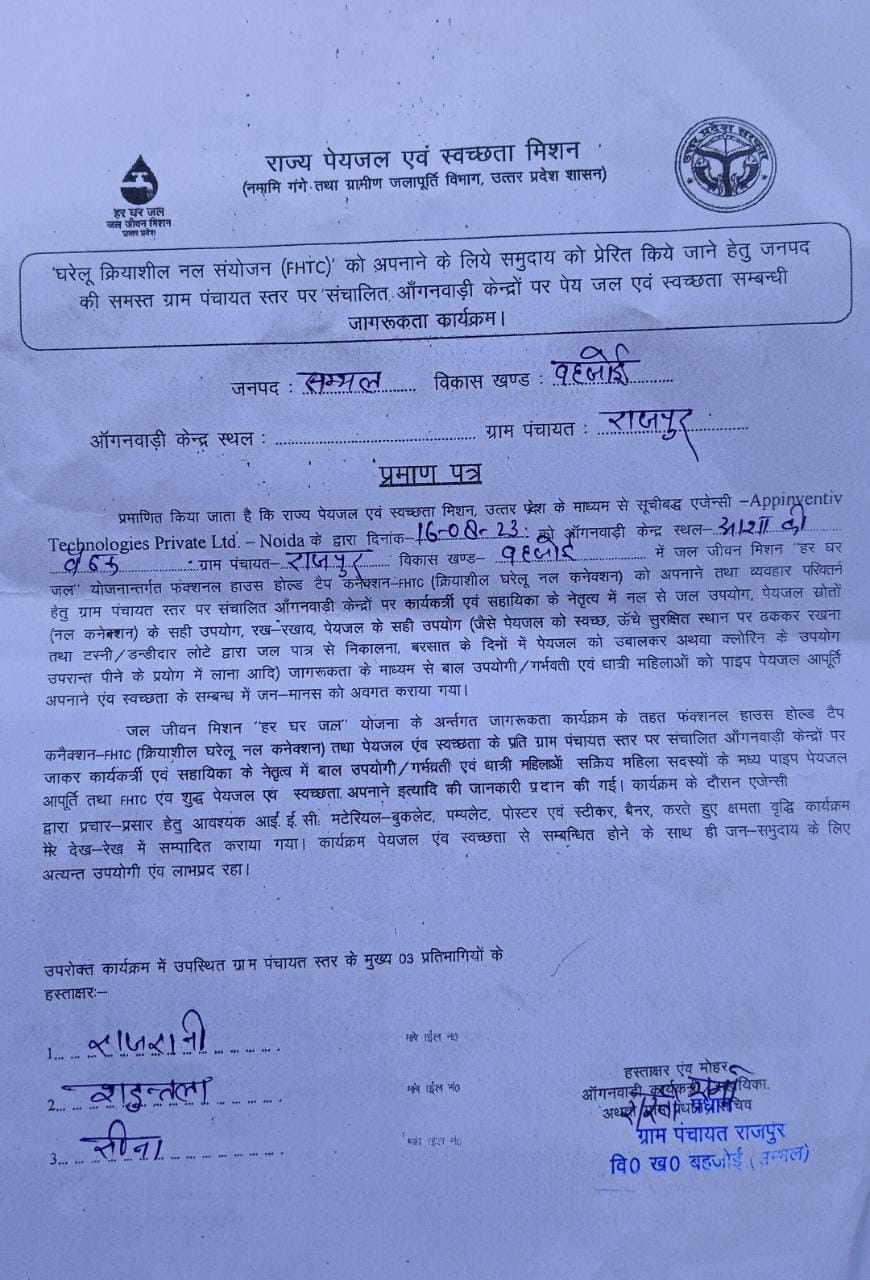 राज्य पेयजल एवं स्वच्छता मिशन
(नमामि गंगे तथा ग्रामीण जलापूर्ति विभाग, उत्तर प्रदेश शासन)
हर घर जल
जल जीवन मिशन
उत्तर प्रदेश
उत्तर प्रदेश सरकार
'घरेलू क्रियाशील नल संयोजन (FHTC)' को अपनाने के लिये समुदाय को प्रेरित किये जाने हेतु जनपद
की समस्त ग्राम पंचायत स्तर पर संचालित आँगनवाड़ी केन्द्रों पर पेय जल एवं स्वच्छता सम्बन्धी
जागरूकता कार्यक्रम।
जनपद : सम्भल विकास खण्ड : बहजोई
आँगनवाड़ी केन्द्र स्थल : ग्राम पंचायत : राजपुर
प्रमाण पत्र
प्रमाणित किया जाता है कि राज्य पेयजल एवं स्वच्छता मिशन, उत्तर प्रदेश के माध्यम से सूचीबद्ध एजेन्सी –Appinventiv
Technologies Private Ltd. – Noida के द्वारा दिनांक–16-08-23 को आँगनवाड़ी केन्द्र स्थल– आशा की
बैठक ग्राम पंचायत– राजपुर विकास खण्ड– बहजोई में जल जीवन मिशन "हर घर
जल" योजनान्तर्गत फंक्शनल हाउस होल्ड टैप कनेक्शन–FHTC (क्रियाशील घरेलू नल कनेक्शन) को अपनाने तथा व्यवहार परिवर्तन
हेतु ग्राम पंचायत स्तर पर संचालित आँगनवाड़ी केन्द्रों पर कार्यकर्त्री एवं सहायिका के नेतृत्व में नल से जल उपयोग, पेयजल स्रोतों
(नल कनेक्शन) के सही उपयोग, रख–रखाव, पेयजल के सही उपयोग (जैसे पेयजल को स्वच्छ, ऊँचे सुरक्षित स्थान पर ढककर रखना
तथा टस्नी/डन्डीदार लोटे द्वारा जल पात्र से निकालना, बरसात के दिनों में पेयजल को उबालकर अथवा क्लोरिन के उपयोग
उपरान्त पीने के प्रयोग में लाना आदि) जागरूकता के माध्यम से बाल उपयोगी/गर्भवती एवं धात्री महिलाओं को पाइप पेयजल आपूर्ति
अपनाने एंव स्वच्छता के सम्बन्ध में जन–मानस को अवगत कराया गया।
जल जीवन मिशन "हर घर जल" योजना के अर्न्तगत जागरूकता कार्यक्रम के तहत फंक्शनल हाउस होल्ड टैप
कनैक्शन–FHTC (क्रियाशील घरेलू नल कनेक्शन) तथा पेयजल एंव स्वच्छता के प्रति ग्राम पंचायत स्तर पर संचालित आँगनवाड़ी केन्द्रों पर
जाकर कार्यकर्त्री एवं सहायिका के नेतृत्व में बाल उपयोगी/गर्भवती एवं धात्री महिलाओं सक्रिय महिला सदस्यों के मध्य पाइप पेयजल
आपूर्ति तथा FHTC एंव शुद्ध पेयजल एवं स्वच्छता अपनाने इत्यादि की जानकारी प्रदान की गई। कार्यक्रम के दौरान एजेन्सी
द्वारा प्रचार–प्रसार हेतु आवश्यक आई.ई.सी. मटेरियल–बुकलेट, पम्पलेट, पोस्टर एवं स्टीकर, बैनर, करते हुए क्षमता वृद्धि कार्यक्रम
मेरे देख–रेख में सम्पादित कराया गया। कार्यक्रम पेयजल एंव स्वच्छता से सम्बन्धित होने के साथ ही जन–समुदाय के लिए
अत्यन्त उपयोगी एंव लाभप्रद रहा।
उपरोक्त कार्यक्रम में उपस्थित ग्राम पंचायत स्तर के मुख्य 03 प्रतिभागियों के
हस्ताक्षरः–
1. राजरानी मोबाईल नं0
2. शकुन्तला मोबाईल नं0
3. सीमा मोबाईल नं0
हस्ताक्षर एंव मोहर
आँगनवाड़ी कार्यकत्री
प्रधान
ग्राम पंचायत राजपुर
वि0 ख0 बहजोई (सम्भल)